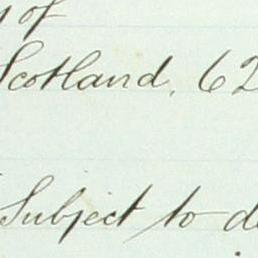 of
Scotland, 62
Subject to